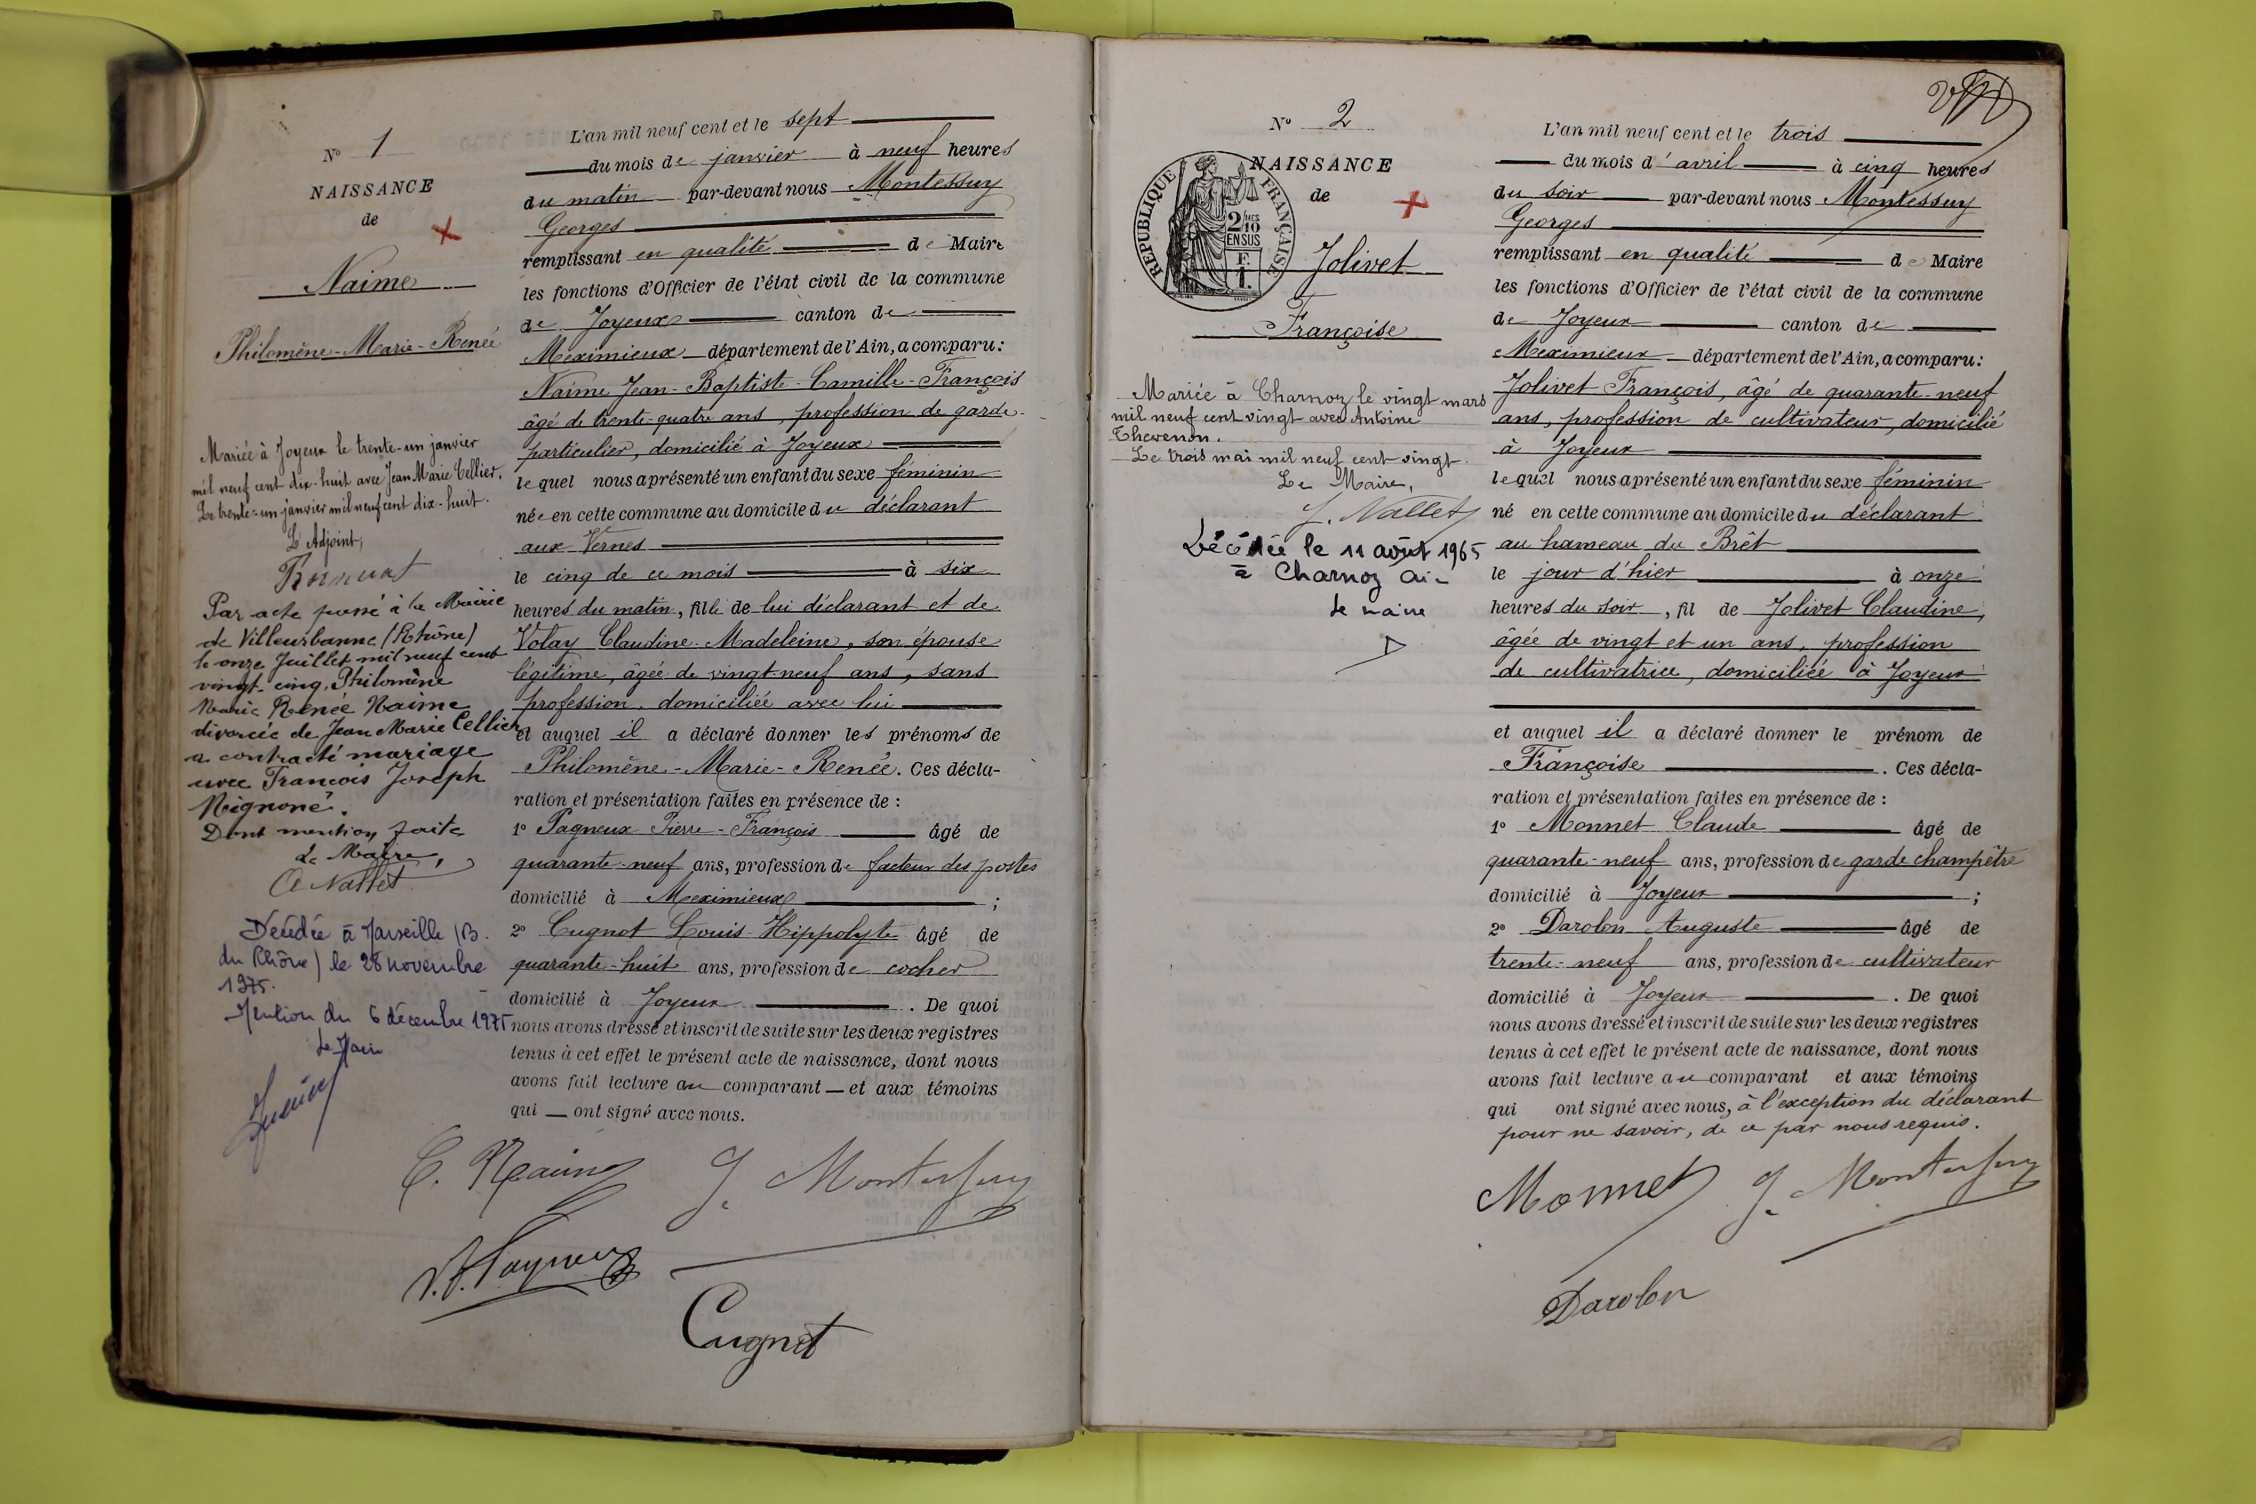 N° 1
NAISSANCE
de
Naime
Philomène-Marie-Renée
Mariée à Joyeux le trente-un janvier
mil neuf cent dix-huit avec Jean Marie Cellier.
Le trente-un janvier mil neuf cent dix-huit.
L'Adjoint,
Par acte passé à la Mairie
de Villeurbanne (Rhône)
le onze Juillet mil neuf cent
vingt-cinq, Philomène
Marie Renée Naime
divorcée de Jean Marie Cellier
a contracté mariage
avec François Joseph
Mignoné.
Dont mention faite
Le Maire,
Nallet
Décédée à Marseille (B.
du Rhône) le 28 novembre
1975.
Mention du 6 décembre 1975
Le Maire
L'an mil neuf cent et le sept
du mois de janvier à neuf heures
du matin par-devant nous Montessuy
Georges
remplissant en qualité de Maire
les fonctions d'Officier de l'état civil de la commune
de Joyeux canton de
Meximieux département de l'Ain, a comparu:
Naime Jean-Baptiste-Camille-François
âgé de trente-quatre ans, profession de garde-
particulier, domicilié à Joyeux
lequel nous a présenté un enfant du sexe féminin
née en cette commune au domicile du déclarant
aux Vernes
le cinq de ce mois à six
heures du matin, fille de lui déclarant et de
Volay Claudine-Madeleine, son épouse
légitime, âgée de vingt-neuf ans, sans
profession, domiciliée avec lui
et auquel il a déclaré donner les prénoms de
Philomène-Marie-Renée. Ces décla-
ration et présentation faites en présence de :
1° Pagneux Pierre-François âgé de
quarante-neuf ans, profession de facteur des postes
domicilié à Meximieux ;
2° Cugnot Louis-Hippolyte âgé de
quarante-huit ans, profession de cocher
domicilié à Joyeux . De quoi
nous avons dressé et inscrit de suite sur les deux registres
tenus à cet effet le présent acte de naissance, dont nous
avons fait lecture au comparant et aux témoins
qui ont signé avec nous.
C. Naime G. Montessuy
Cugnot
N° 2
NAISSANCE
de
RÉPUBLIQUE FRANÇAISE
2/10 MES
EN SUS
F.
1.
Jolivet
Françoise
Mariée à Charnoz le vingt mars
mil neuf cent vingt avec Antoine
Thevenon.
Le trois mai mil neuf cent vingt.
Le Maire,
Nallet
Décédée le 11 août 1965
à Charnoz Ain
Le maire
L'an mil neuf cent et le trois
du mois d'avril à cinq heures
du soir par-devant nous Montessuy
Georges
remplissant en qualité de Maire
les fonctions d'Officier de l'état civil de la commune
de Joyeux canton de
Meximieux département de l'Ain, a comparu:
Jolivet François, âgé de quarante-neuf
ans, profession de cultivateur, domicilié
à Joyeux
lequel nous a présenté un enfant du sexe féminin
né en cette commune au domicile du déclarant
au hameau du Brêt
le jour d'hier à onze
heures du soir, fil de Jolivet Claudine,
âgée de vingt et un ans, profession
de cultivatrice, domiciliée à Joyeux
et auquel il a déclaré donner le prénom de
Françoise . Ces décla-
ration et présentation faites en présence de :
1° Monnet Claude âgé de
quarante-neuf ans, profession de garde champêtre
domicilié à Joyeux ;
2° Darolon Auguste âgé de
trente-neuf ans, profession de cultivateur
domicilié à Joyeux . De quoi
nous avons dressé et inscrit de suite sur les deux registres
tenus à cet effet le présent acte de naissance, dont nous
avons fait lecture au comparant et aux témoins
qui ont signé avec nous, à l'exception du déclarant
pour ne savoir, de ce par nous requis.
Monnet G. Montessuy
Darolon